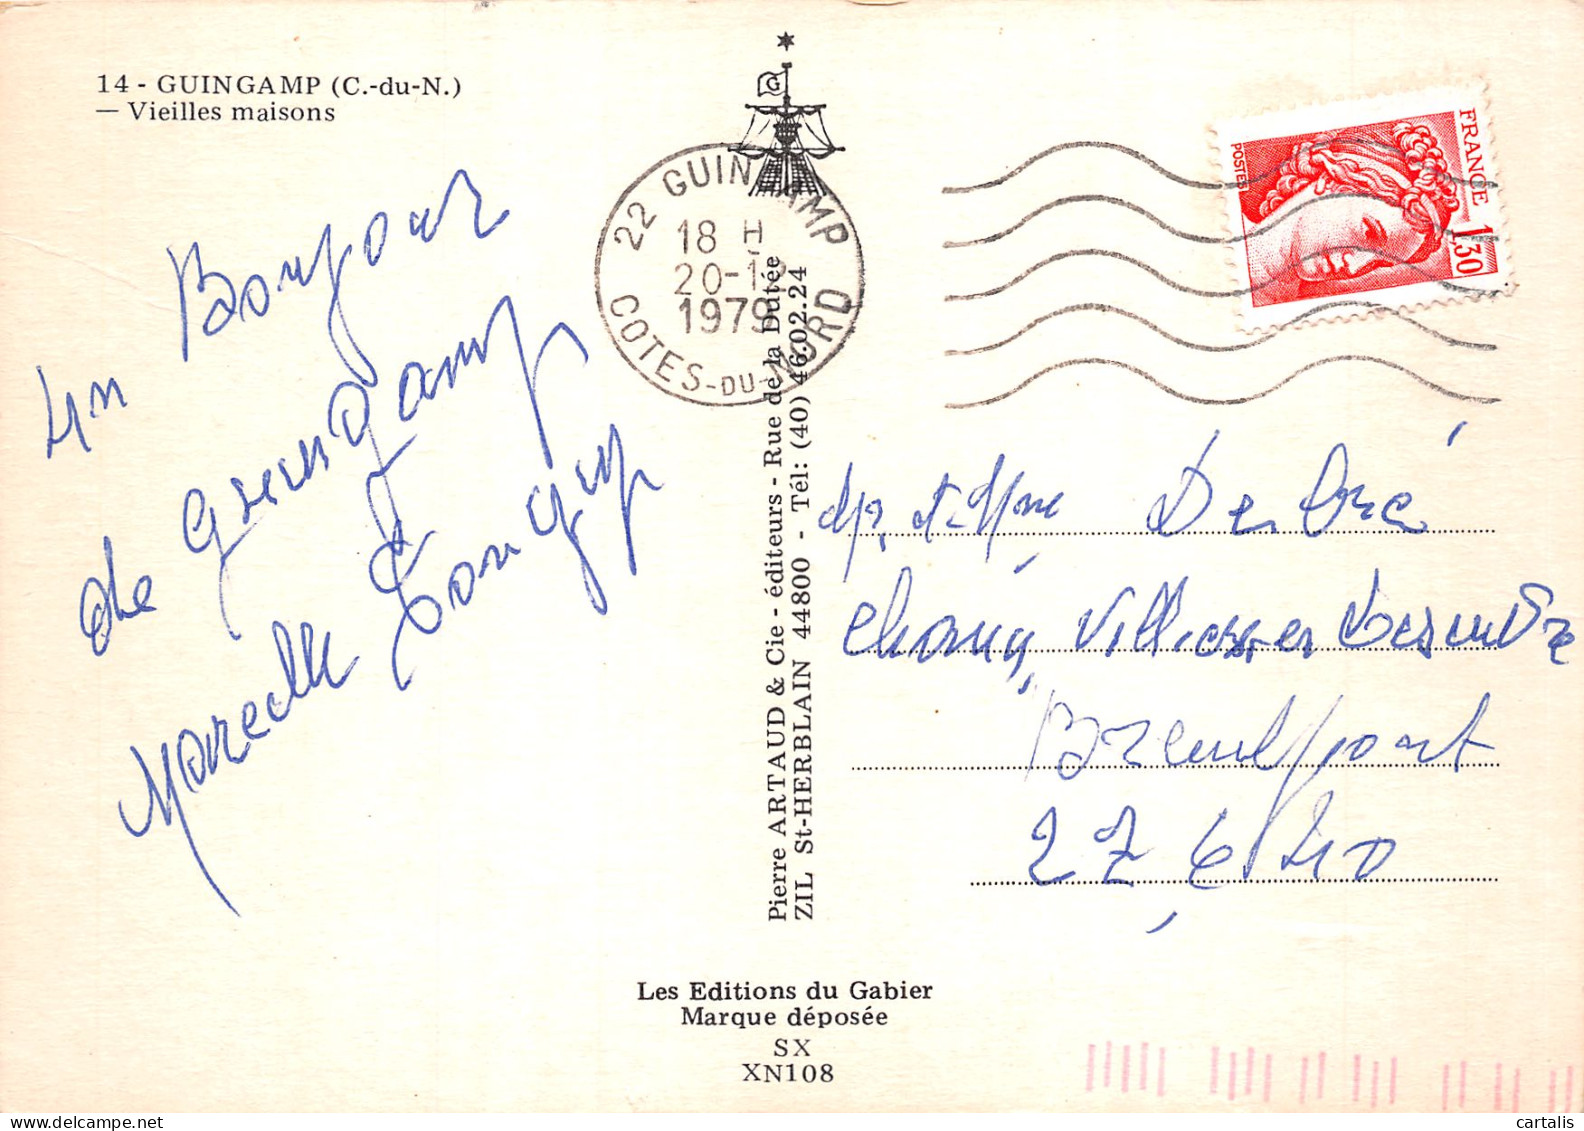 14 - GUINGAMP (C.-du-N.)
— Vieilles maisons
G
22 GUINGAMP
18 H
20-1
1979
COTES-DU-NORD
FRANCE 1,30
POSTES
un Bonjour
de Guingamp
Marcelle
Pierre ARTAUD & Cie - éditeurs - Rue de la Dutée
ZIL St-HERBLAIN 44800 - Tél: (40) 46.02.24
Mr et Mme
Breuilpont
27640
Les Editions du Gabier
Marque déposée
SX
XN108
cartalis